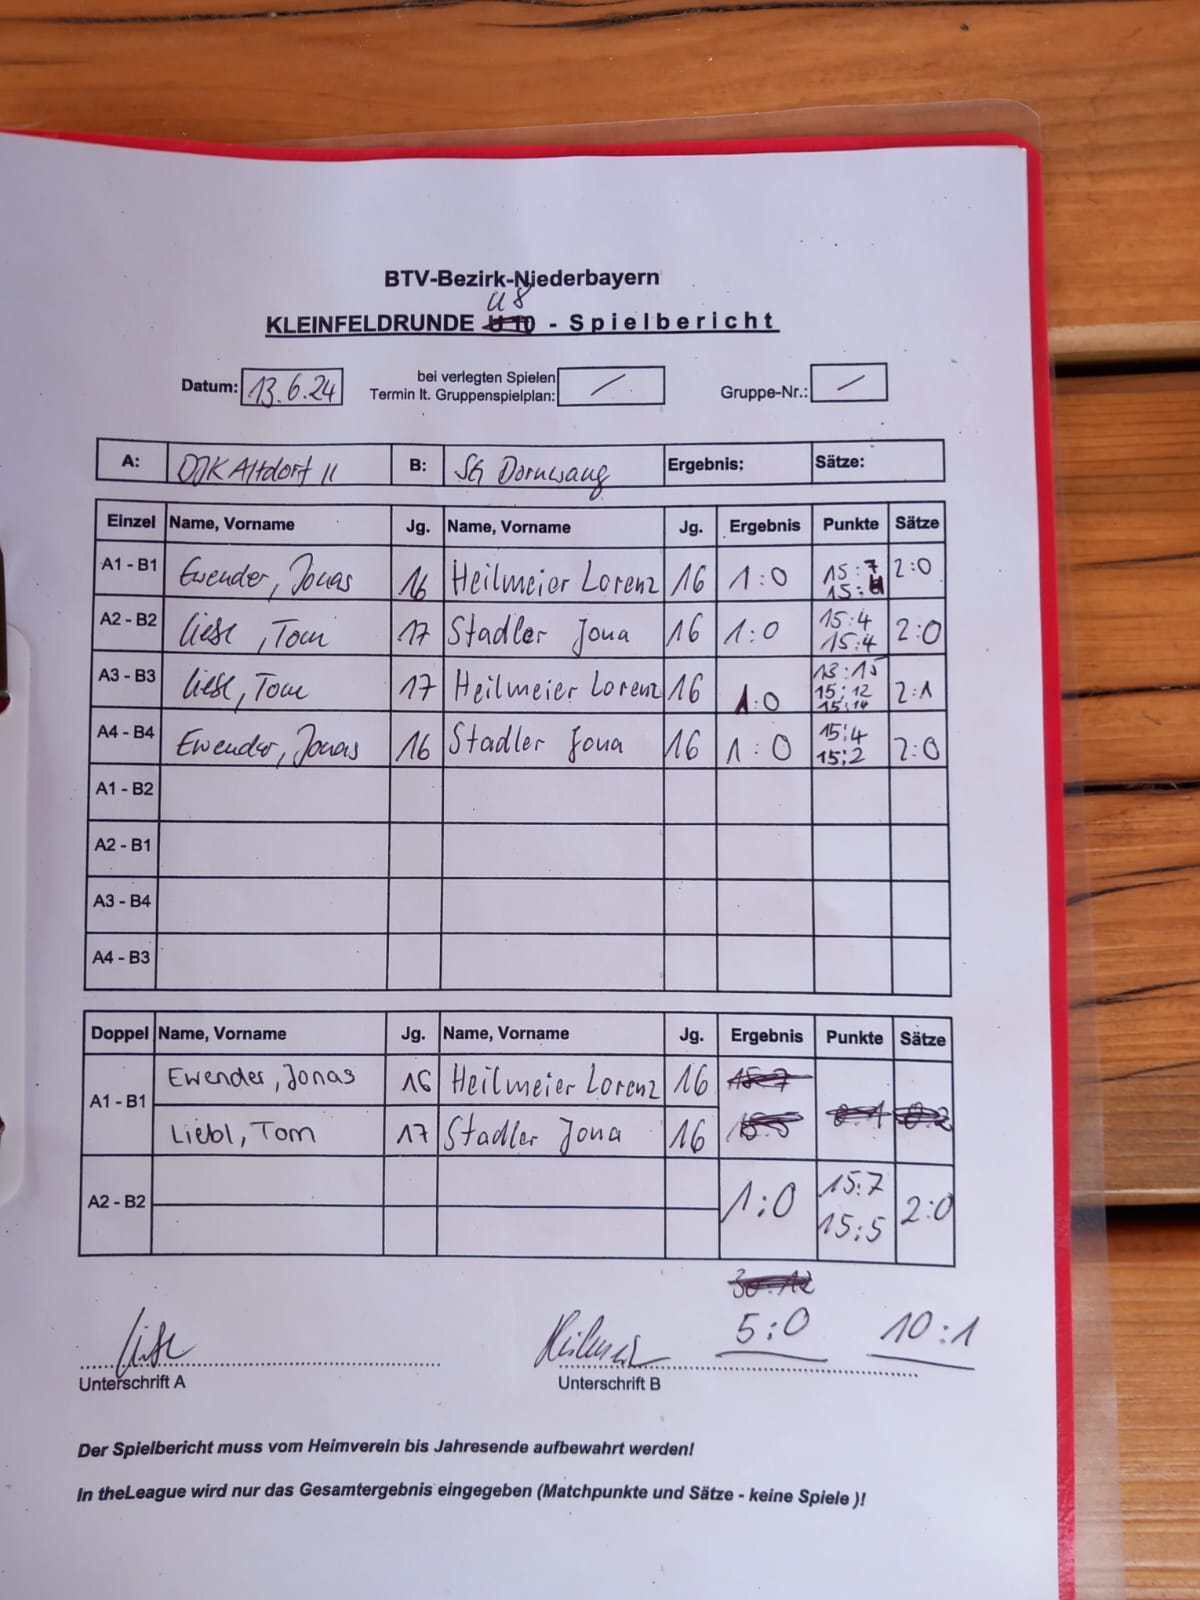 BTV-Bezirk-Niederbayern
U8
KLEINFELDRUNDE U 10 - Spielbericht
Datum: 13.6.24 bei verlegten Spielen Termin lt. Gruppenspielplan: / Gruppe-Nr.: /
A: DJK Altdorf II B: SG Dornwang Ergebnis: Sätze:
Einzel Name, Vorname Jg. Name, Vorname Jg. Ergebnis Punkte Sätze
A1 - B1 Ewender, Jonas 16 Heilmeier Lorenz 16 1:0 15:7 15: 2:0
A2 - B2 Liebl, Tom 17 Stadler Jona 16 1:0 15:4 15:4 2:0
A3 - B3 Liebl, Tom 17 Heilmeier Lorenz 16 1:0 13:15 15:12 15:14 2:1
A4 - B4 Ewender, Jonas 16 Stadler Jona 16 1:0 15:4 15:2 2:0
A1 - B2
A2 - B1
A3 - B4
A4 - B3
Doppel Name, Vorname Jg. Name, Vorname Jg. Ergebnis Punkte Sätze
A1 - B1 Ewender, Jonas 16 Heilmeier Lorenz 16
Liebl, Tom 17 Stadler Jona 16
A2 - B2 1:0 15:7 15:5 2:0
5:0 10:1
Unterschrift A Unterschrift B
Der Spielbericht muss vom Heimverein bis Jahresende aufbewahrt werden!
In theLeague wird nur das Gesamtergebnis eingegeben (Matchpunkte und Sätze - keine Spiele )!